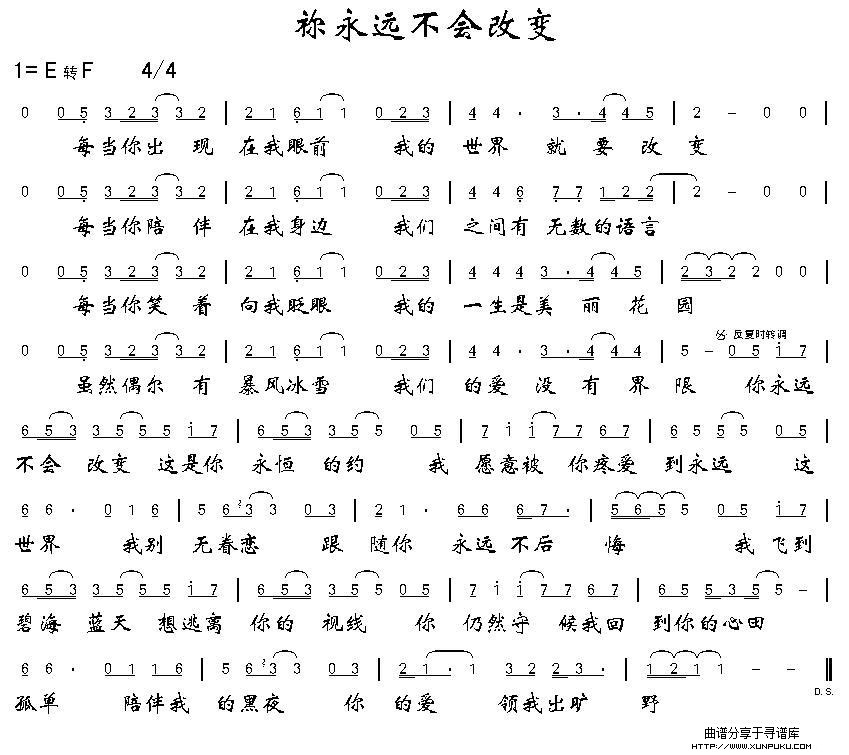 祢永远不会改变
1= E 转 F 4/4
0 0 5 3 2 3 3 2 | 2 1 6 1 1 0 2 3 | 4 4 · 3 · 4 4 5 | 2 – 0 0 |
每当你出 现 在我眼前 我的 世界 就 要 改 变
0 0 5 3 2 3 3 2 | 2 1 6 1 1 0 2 3 | 4 4 6 7 7 1 2 2 | 2 – 0 0 |
每当你陪 伴 在我身边 我们 之间有 无数的语言
0 0 5 3 2 3 3 2 | 2 1 6 1 1 0 2 3 | 4 4 4 3 · 4 4 5 | 2 3 2 2 0 0 |
每当你笑 着 向我眨眼 我的 一生是美 丽 花 园
𝄋 反复时转调
0 0 5 3 2 3 3 2 | 2 1 6 1 1 0 2 3 | 4 4 · 3 · 4 4 4 | 5 – 0 5 i 7
虽然偶尔 有 暴风冰雪 我们 的爱 没 有 界 限 你永远
6 5 3 3 5 5 5 i 7 | 6 5 3 3 5 5 0 5 | 7 i i 7 7 6 7 | 6 5 5 5 0 5 |
不会 改变 这是你 永恒 的约 我 愿意被 你疼爱 到永远 这
6 6 · 0 1 6 | 5 6 3 3 3 0 3 | 2 1 · 6 6 7 · | 5 6 5 5 0 5 i 7 |
世界 我别 无眷恋 跟 随你 永远 不后 悔 我 飞到
6 5 3 3 5 5 5 i 7 | 6 5 3 3 5 5 0 5 | 7 i i 7 7 6 7 | 6 5 5 3 5 5 – |
碧海 蓝天 想逃离 你的 视线 你 仍然守 候我回 到你的心田
6 6 · 0 1 1 6 | 5 6 3 3 3 0 3 | 2 1 · 1 3 2 2 3 · | 1 2 1 1 – – ‖
孤单 陪伴我 的黑夜 你 的爱 领我出旷 野
D. S.
曲谱分享于寻谱库
HTTP://WWW.XUNPUKU.COM